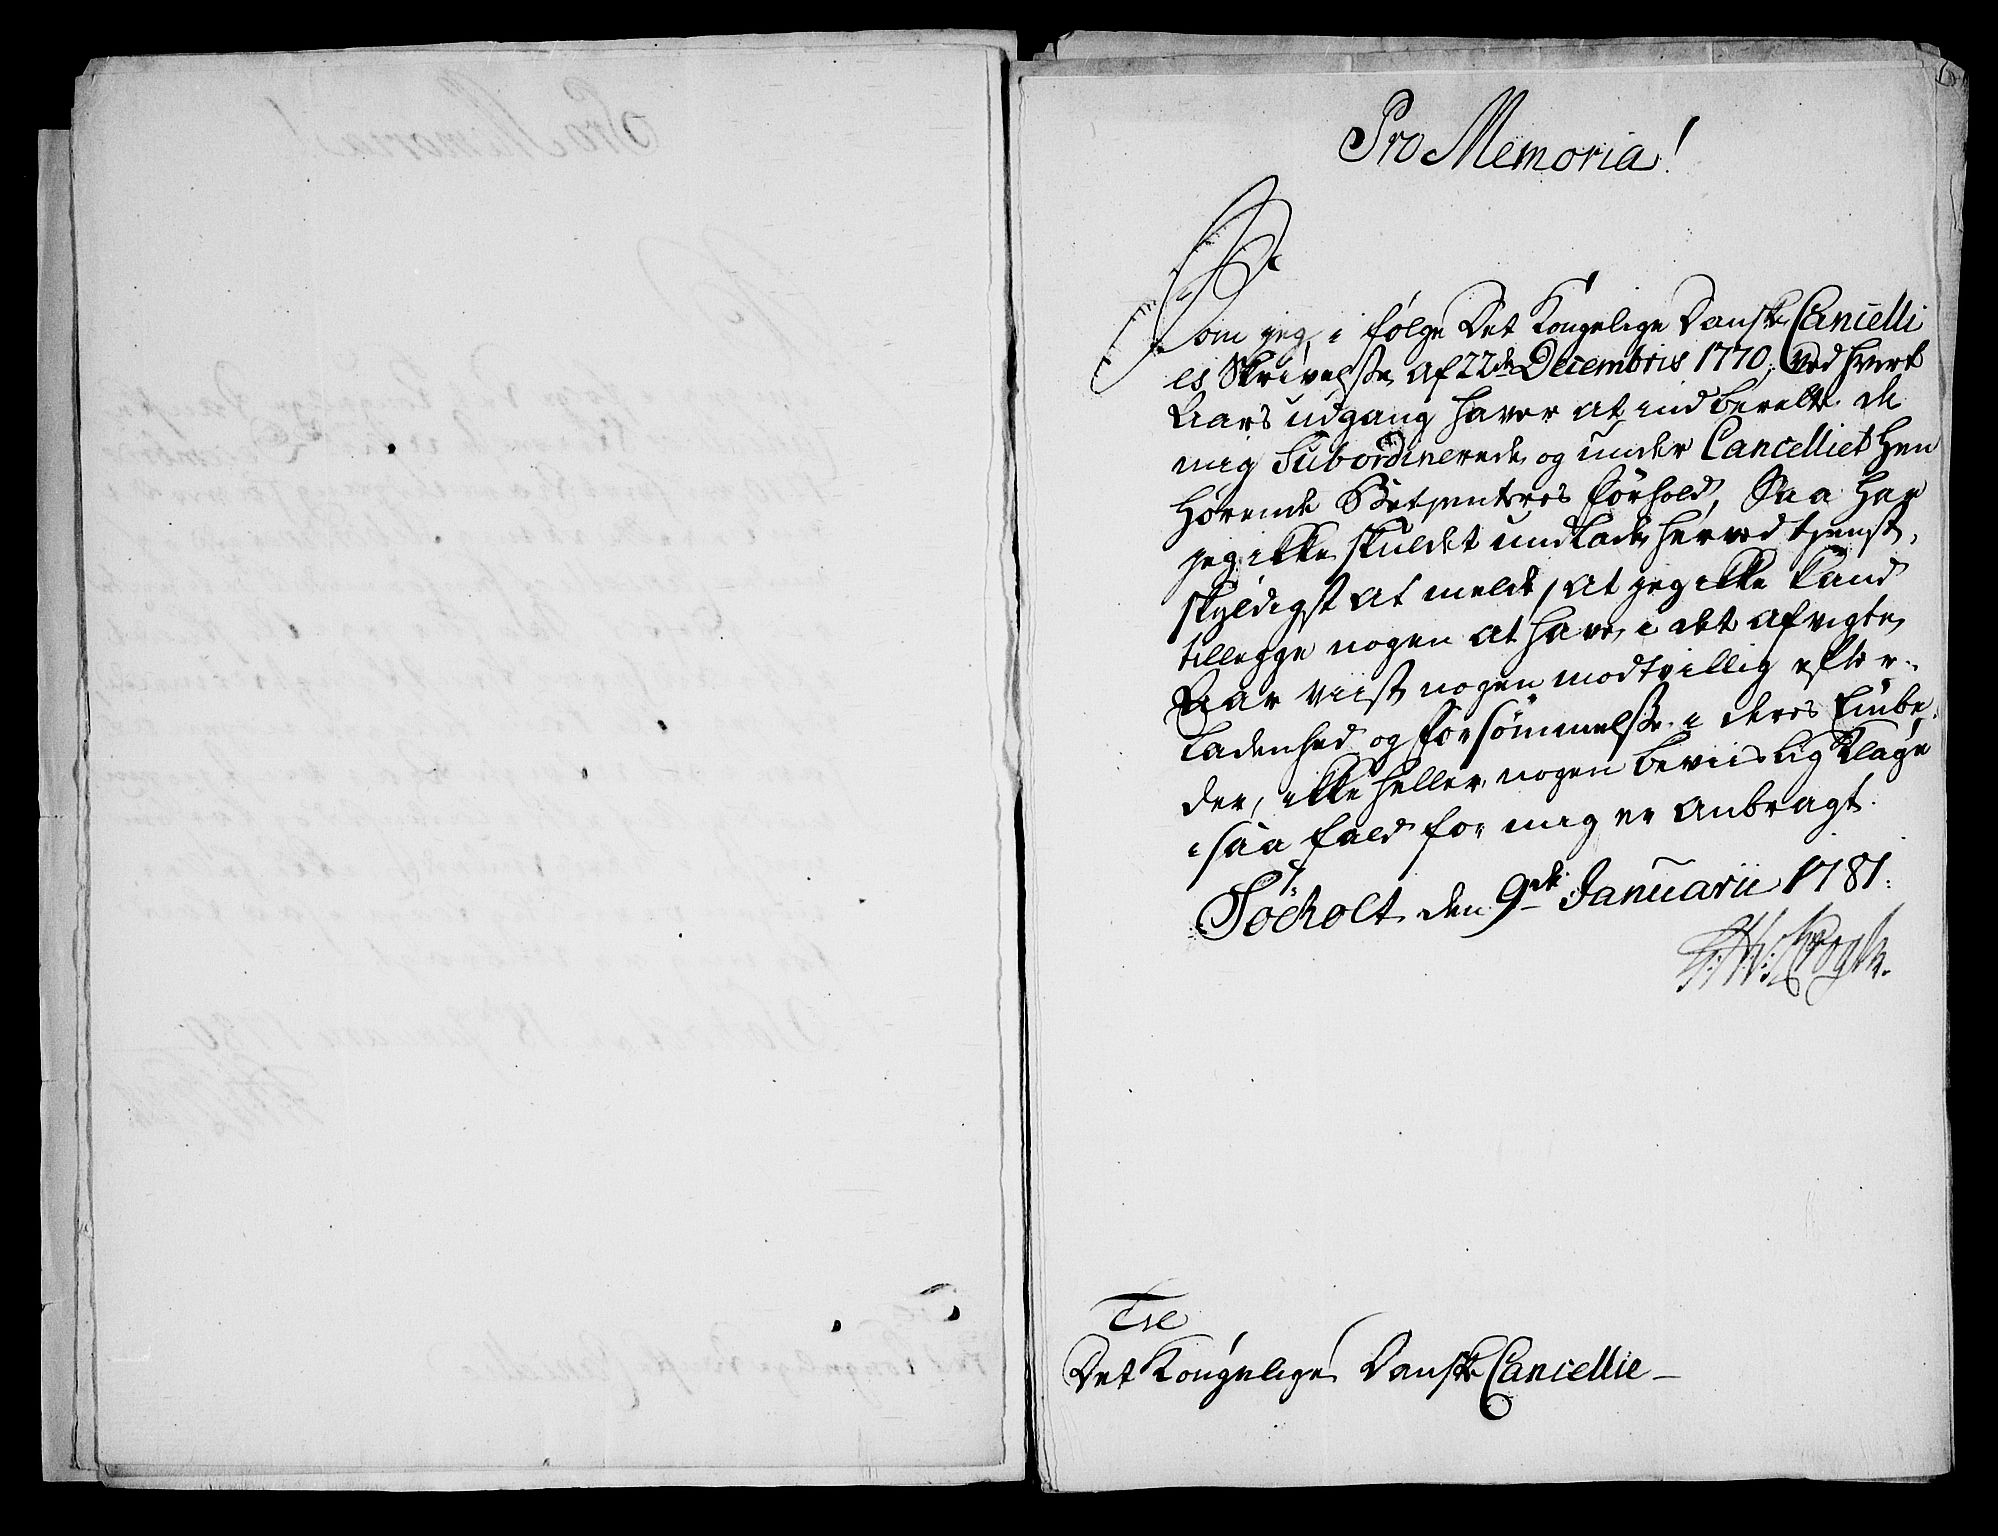 Pro Memoria!
Som jeg, i følge Det Kongelige Danske Cancelli
es Skrivelse af 22de Decembris 1770, ved hvert
Aars udgang haver at indberette de
mig Subordinerede og under Cancelliet hen
hørende Betienteres forhold, Saa har
jeg ikke skuldet undlade herved tienst,
skyldigst at melde, at jeg ikke kand
tillegge nogen at have i det afvigte
Aar viist nogen modtvillig efter-
ladenhed og forsømmelse i deres Embe,
der, ikke heller nogen beviislig Klage
i saa fald for mig er anbragt.
Søeholt den 9de Januarii 1781.
Til
Det Kongelige Danske Cancellie